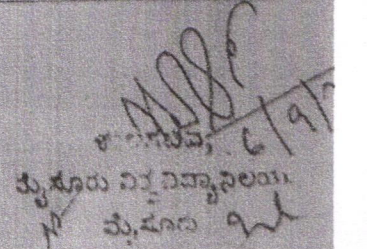 ಕುಲಸಚಿವ, 6/9/
ಮೈಸೂರು ವಿಶ್ವವಿದ್ಯಾನಿಲಯ,
ಮೈಸೂರು